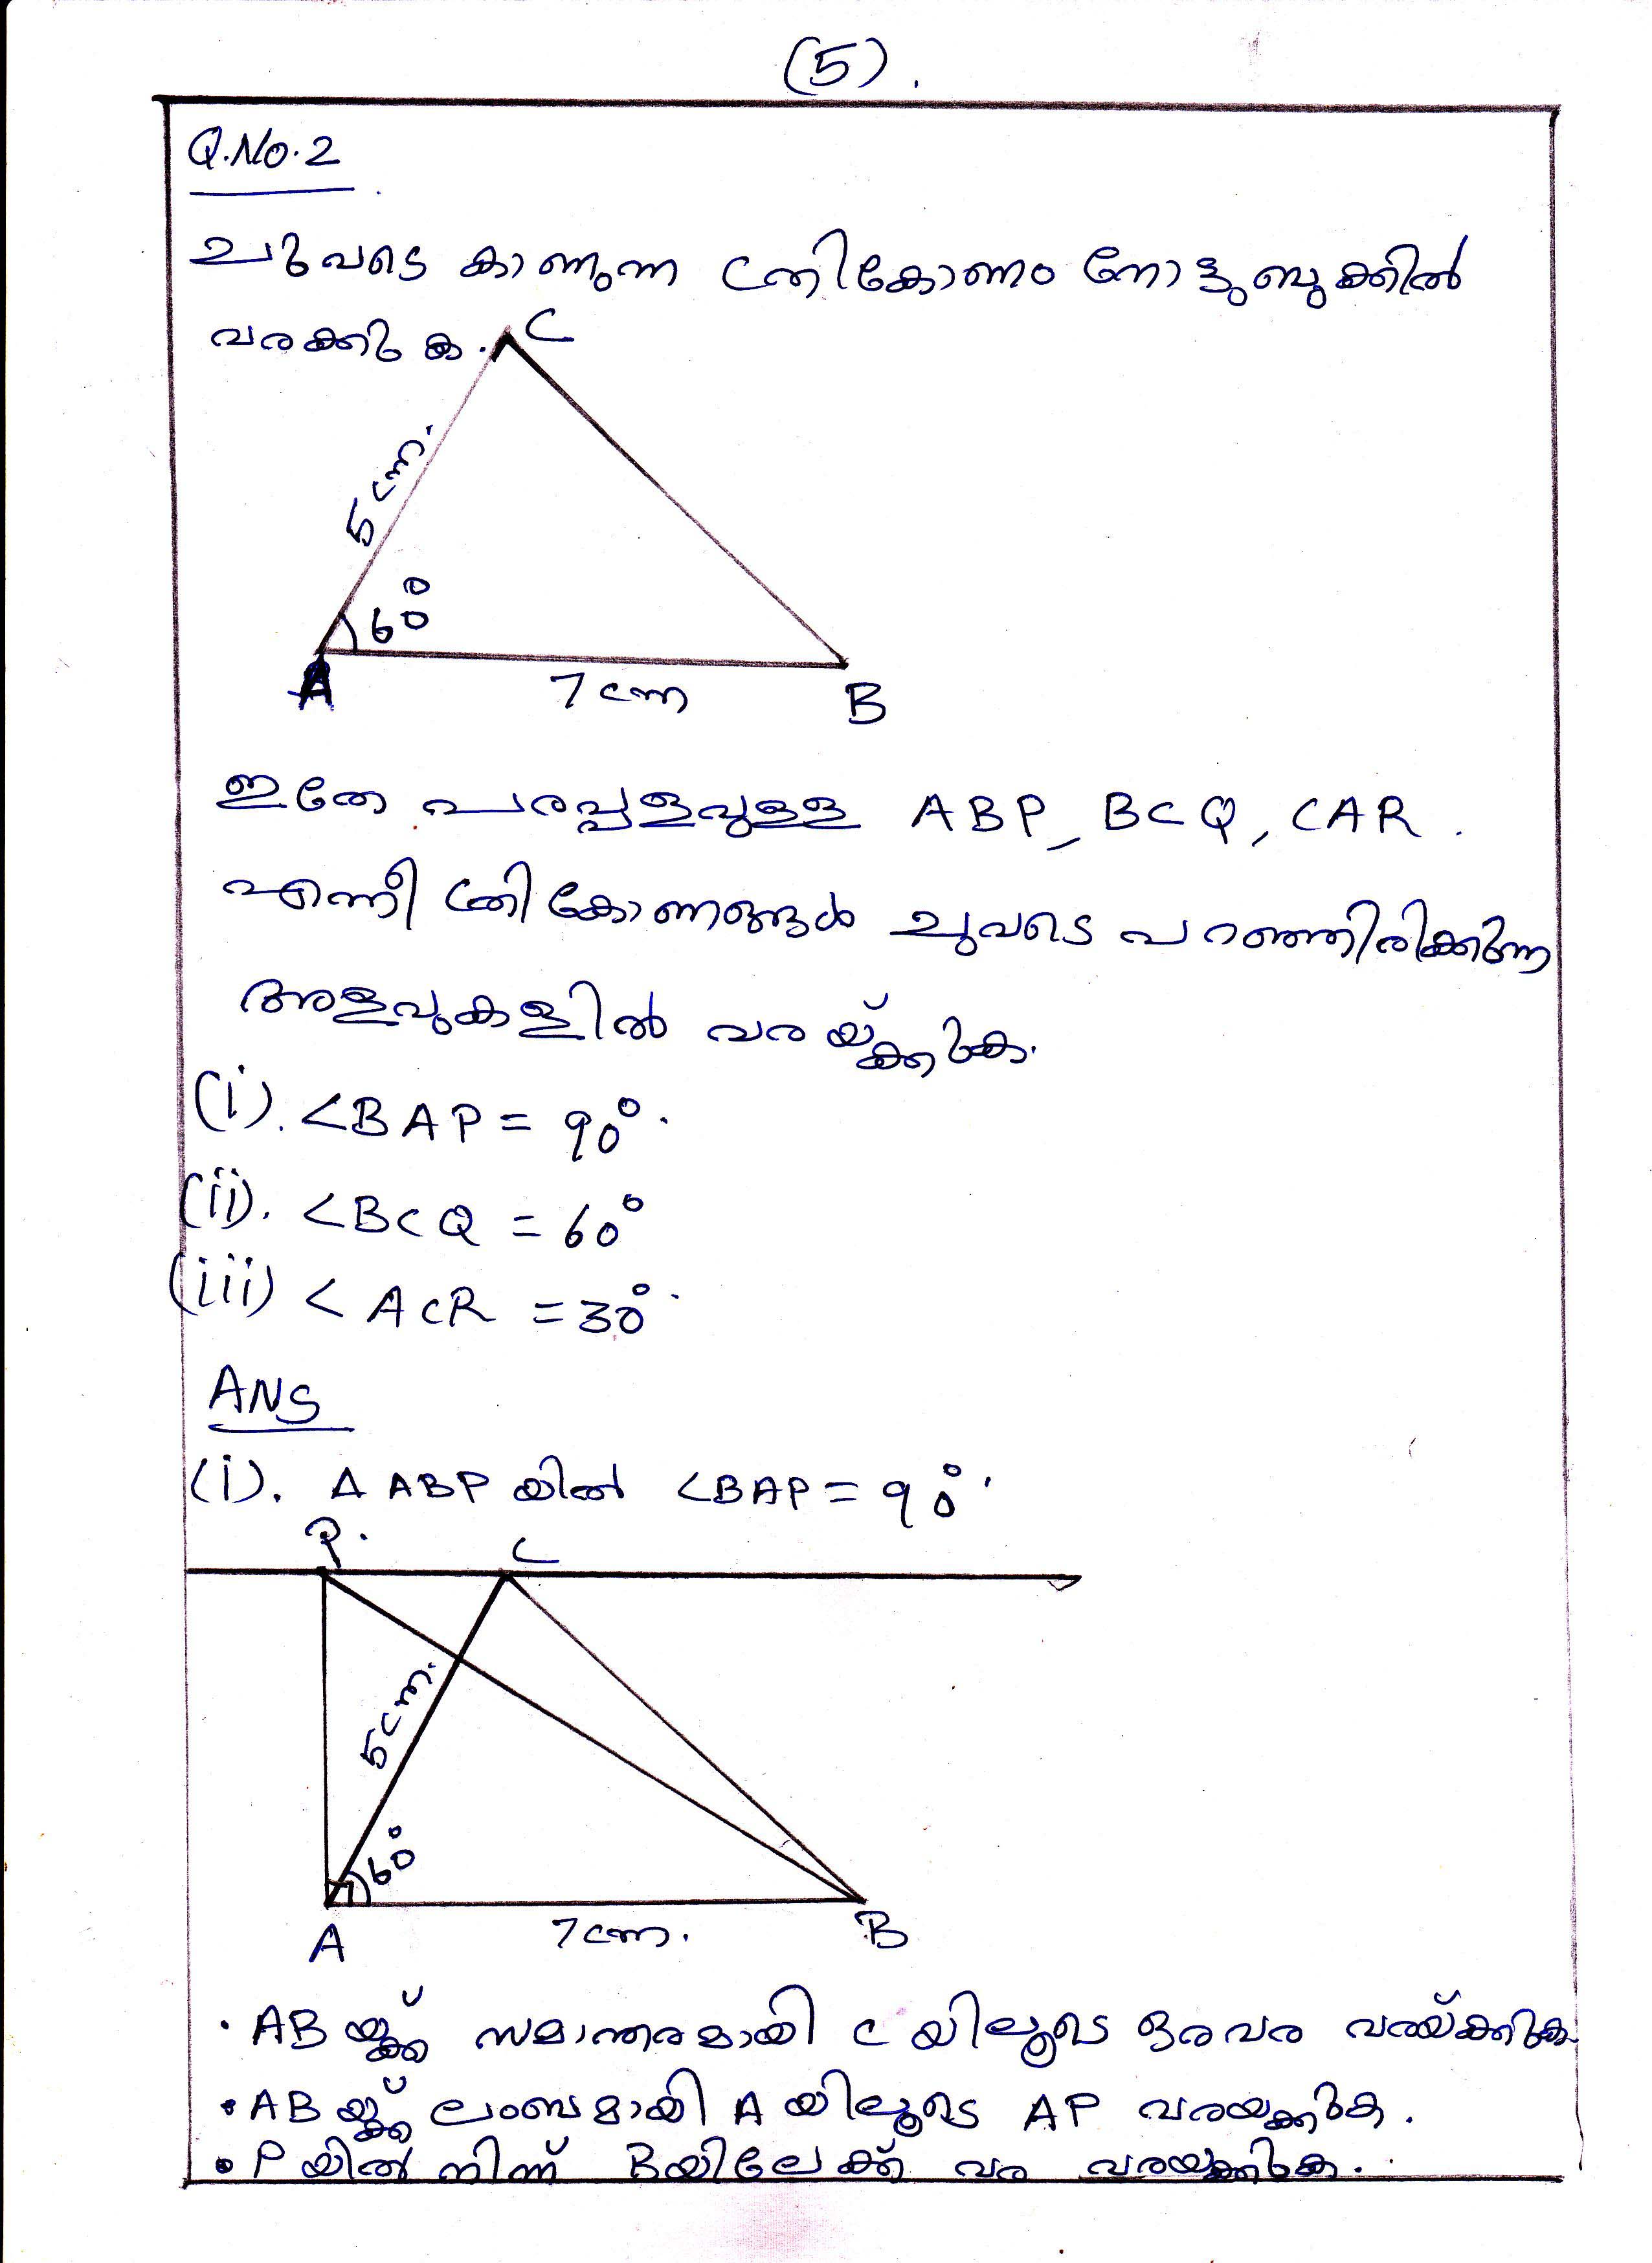 (5).
Q.No.2
ചുവടെ കാണുന്ന ത്രികോണം നോട്ടുബുക്കിൽ
വരക്കുക.
C
5 cm.
60°
A
7 cm
B
ഇതേ പരപ്പളവുള്ള ABP, BCQ, CAR.
എന്നീ ത്രികോണങ്ങൾ ചുവടെ പറഞ്ഞിരിക്കുന്ന
അളവുകളിൽ വരയ്ക്കുക.
(i). <BAP = 90°.
(ii). <BCQ = 60°
(iii) < ACR = 30°.
ANS
(i). Δ ABP യിൽ <BAP = 90°.
P.
C
5cm.
60°
A
7cm.
B
. AB യ്ക്ക് സമാന്തരമായി C യിലൂടെ ഒരു വര വരയ്ക്കുക.
• AB യ്ക്ക് ലംബമായി A യിലൂടെ AP വരയക്കുക.
• P യിൽ നിന്ന് B യിലേക്ക് വര വരയക്കുക.